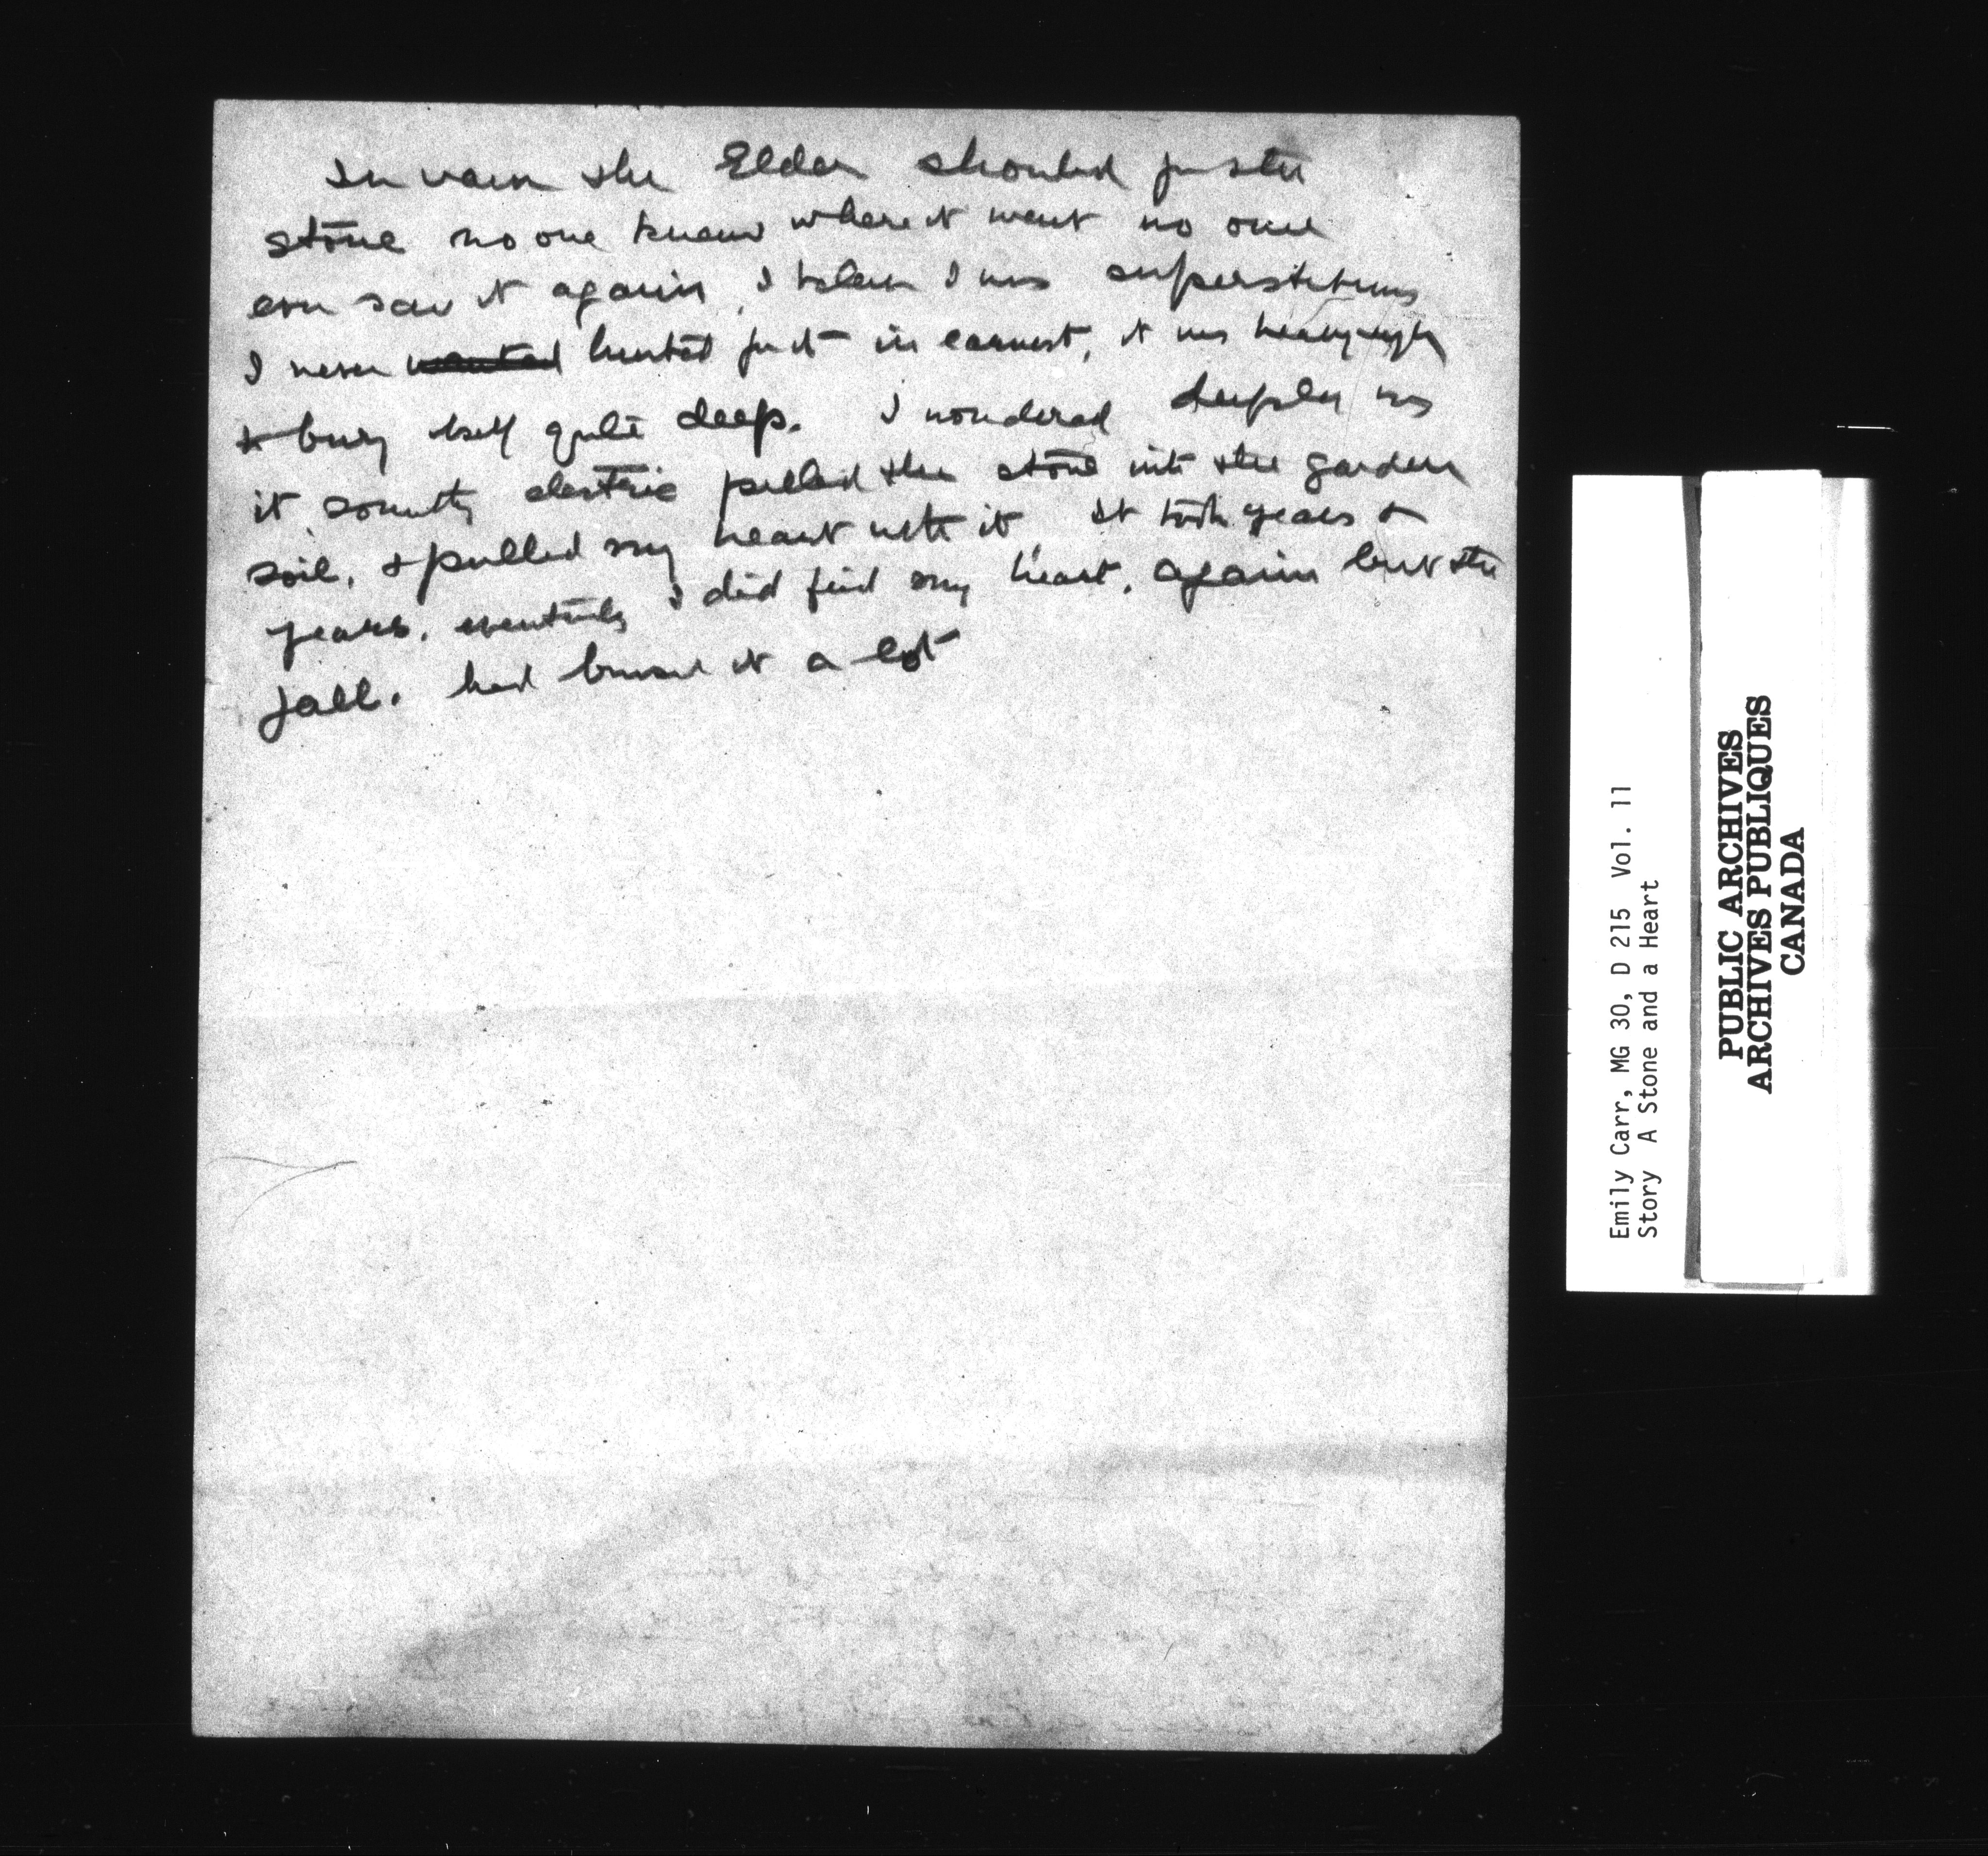 In vain the Elder shouted for the
stone no one knew where it went no one
ever saw it again, I was superstitious
I never wanted hunted just in earnest, it was heavy enough
to bury itself quite deep. I wondered deeply was
it somethg electric pulled the stone into the garden
soil, & pulled my heart with it, it took years &
years, eventuly I did find my heart, again but the
fall. had bruised it a lot
Emily Carr, MG 30, D 215 Vol. 11
Story A Stone and a Heart
PUBLIC ARCHIVES
ARCHIVES PUBLIQUES
CANADA